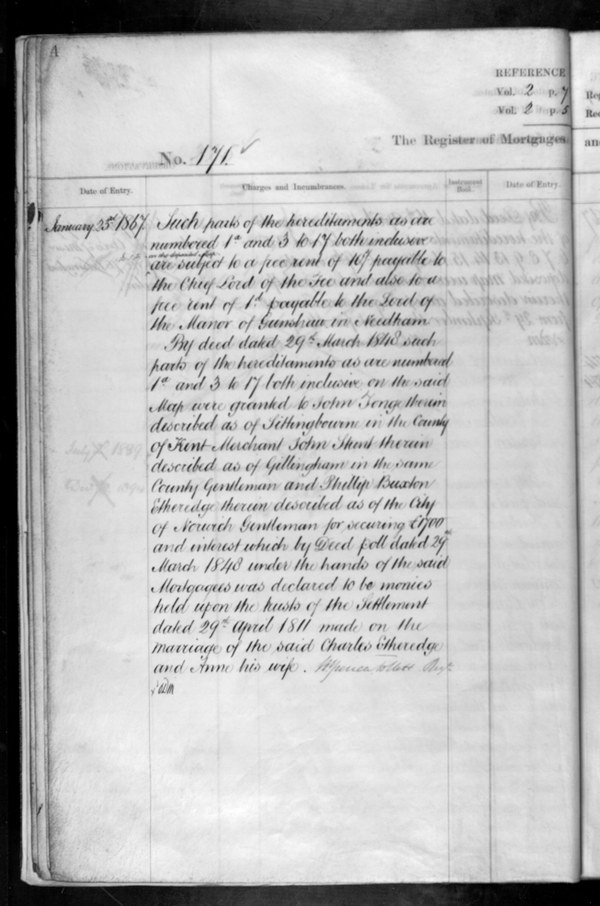 A
REFERENCE
Vol. 2 p. 7
Vol. 2 p. 5
The Register of Mortgages
No. 171
Date of Entry.
Charges and Incumbrances.
Instrument
Date of Entry.
January 25th 1867
Such parts of the hereditaments as are
numbered 1a and 3 to 17 both inclusive
on the deposited plan
are subject to a fee rent of 10d payable to
the Chief Lord of the Fee and also to a
fee rent of 1d payable to the Lord of
the Manor of Gunshaw in Needham
By deed dated 29th March 1843 such
parts of the hereditaments as are numbered
1a and 3 to 17 both inclusive on the said
Map were granted to John Tonge therein
described as of Sittingbourne in the County
of Kent Merchant John Hunt therein
described as of Gillingham in the same
County Gentleman and Phillip Buxton
Etheredge therein described as of the City
of Norwich Gentleman for securing £1700
and interest which by Deed poll dated 29th
March 1843 under the hands of the said
Mortgagees was declared to be monies
held upon the trusts of the Settlement
dated 29th April 1811 made on the
marriage of the said Charles Etheredge
and Anne his wife.